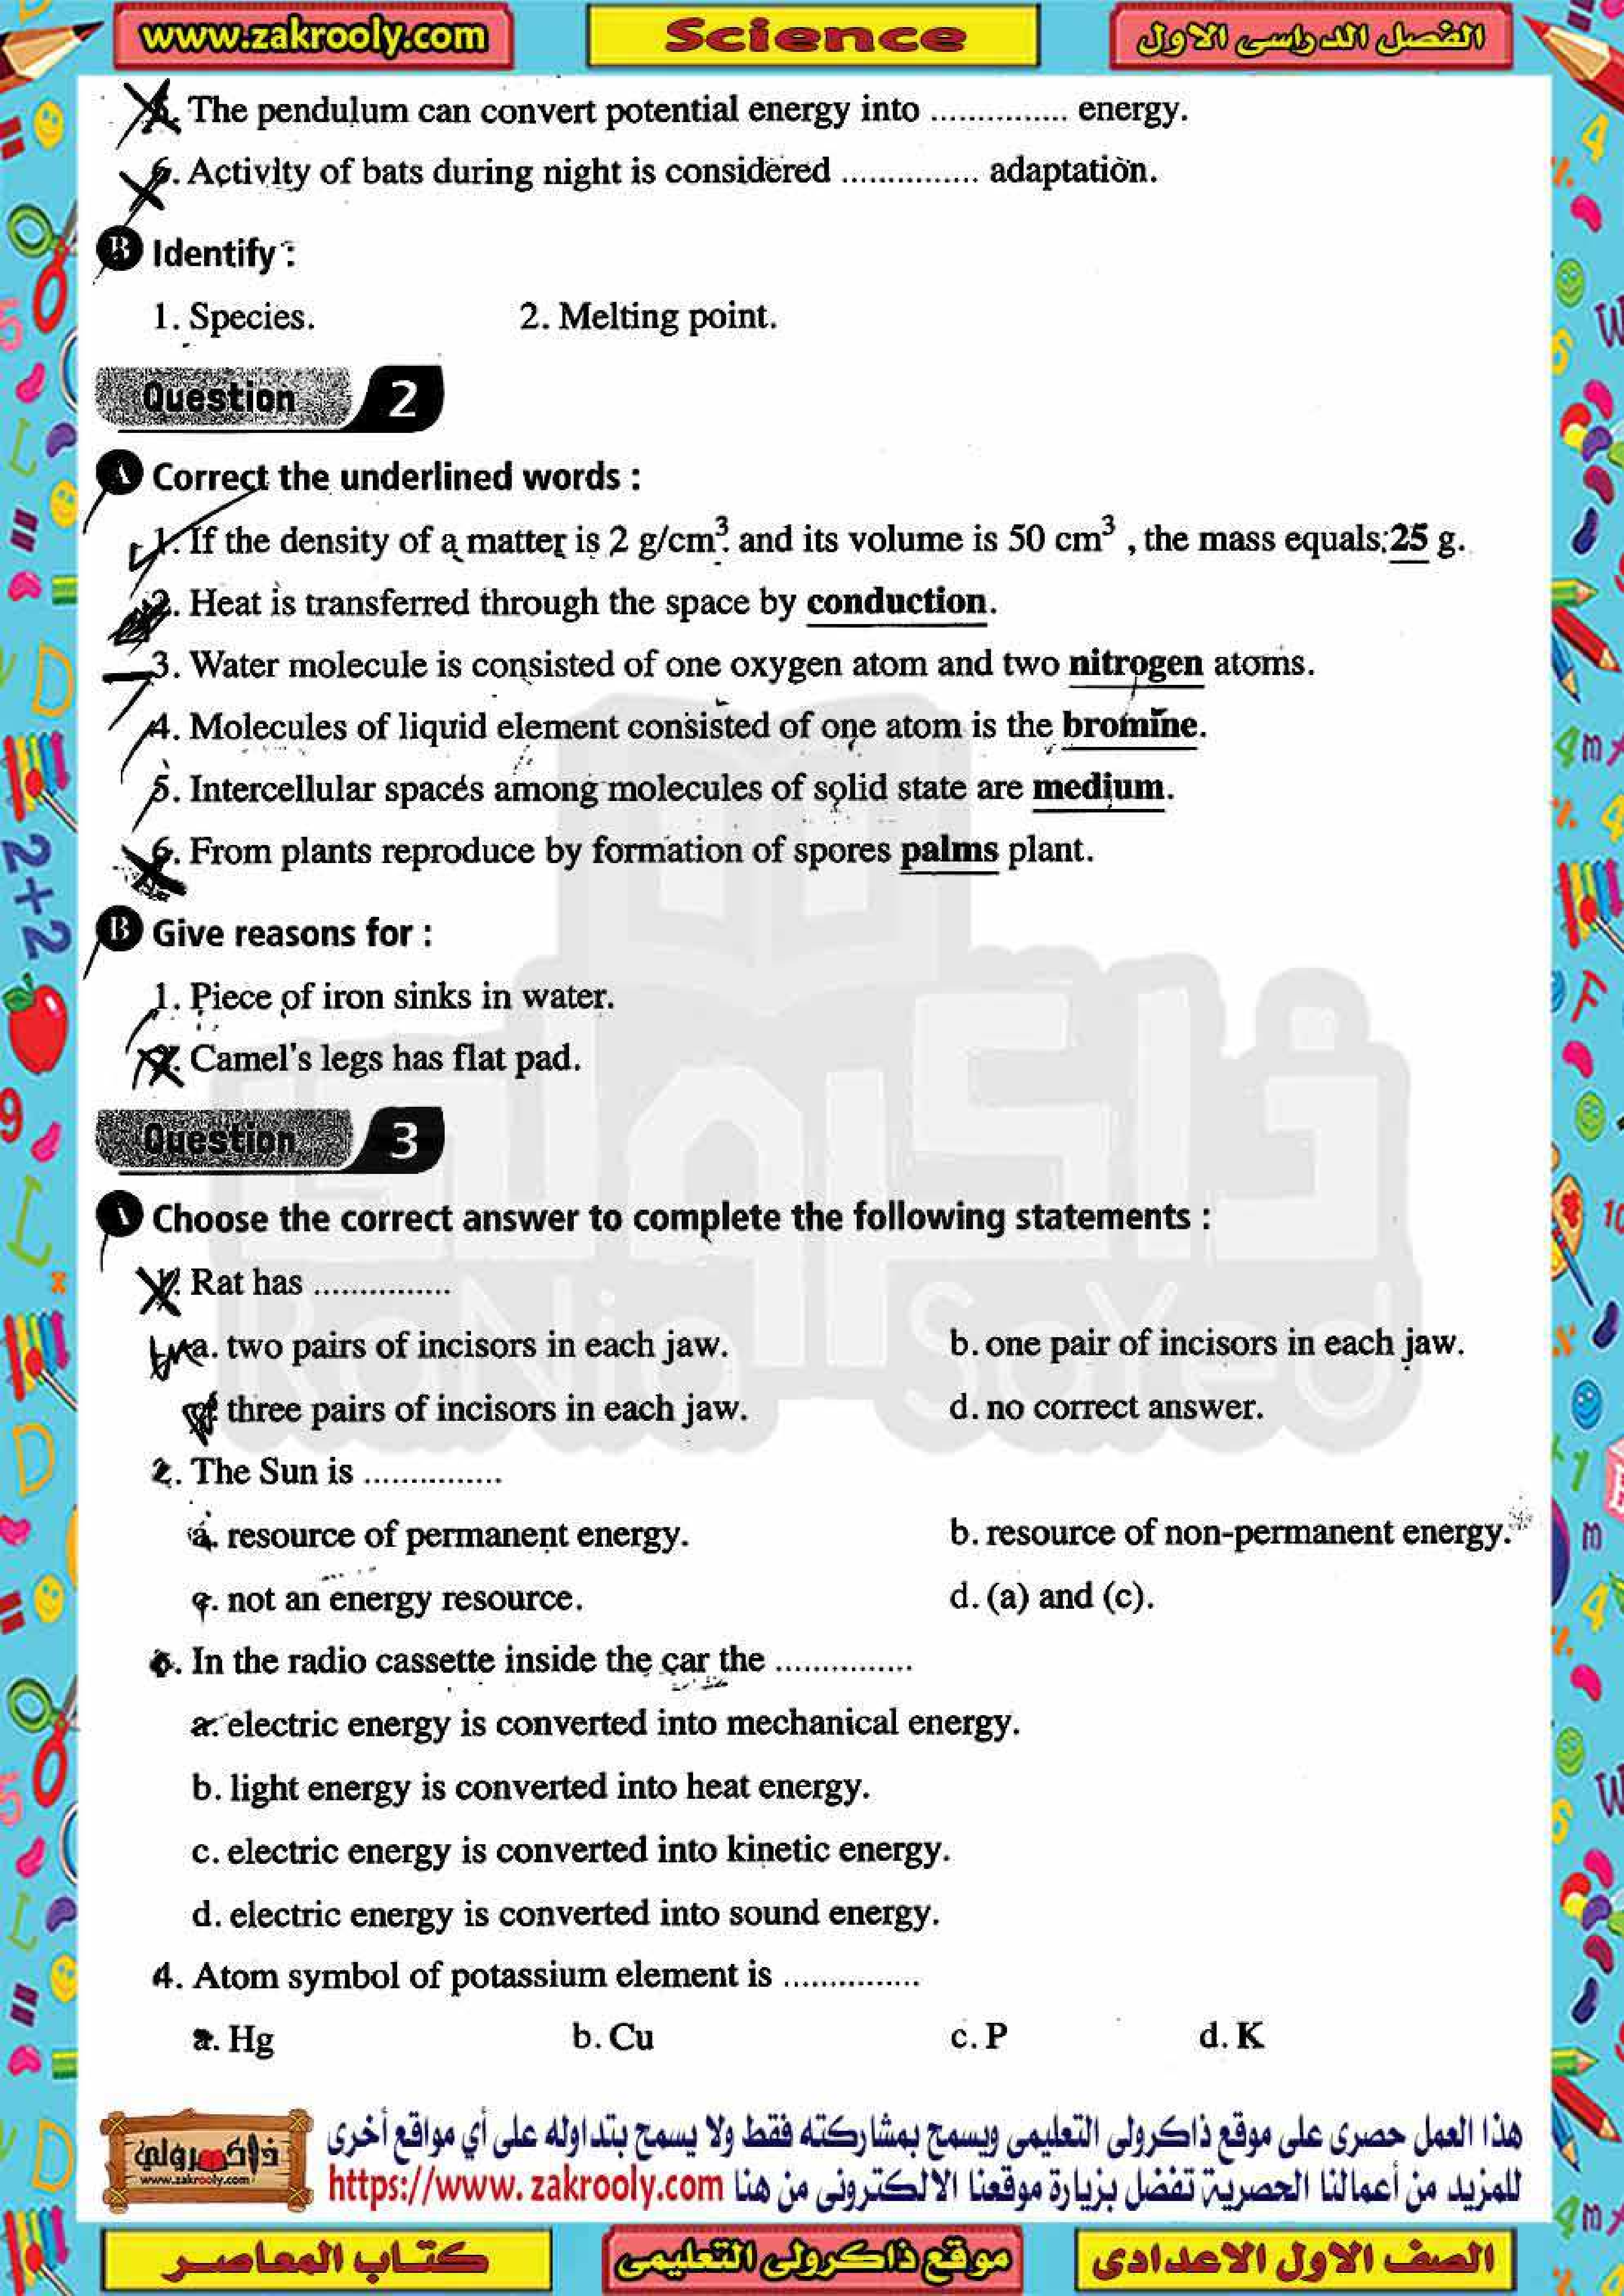 www.zakrooly.com
Science
الفصل الدراسى الاول
5. The pendulum can convert potential energy into ............... energy.
6. Activity of bats during night is considered ............... adaptation.
B Identify :
1. Species.
2. Melting point.
Question 2
A Correct the underlined words :
1. If the density of a matter is 2 g/cm³. and its volume is 50 cm³ , the mass equals 25 g.
2. Heat is transferred through the space by conduction.
3. Water molecule is consisted of one oxygen atom and two nitrogen atoms.
4. Molecules of liquid element consisted of one atom is the bromine.
5. Intercellular spaces among molecules of solid state are medium.
6. From plants reproduce by formation of spores palms plant.
B Give reasons for :
1. Piece of iron sinks in water.
2. Camel's legs has flat pad.
Question 3
A Choose the correct answer to complete the following statements :
1. Rat has ...............
a. two pairs of incisors in each jaw.
b. one pair of incisors in each jaw.
c. three pairs of incisors in each jaw.
d. no correct answer.
2. The Sun is ...............
a. resource of permanent energy.
b. resource of non-permanent energy.
c. not an energy resource.
d. (a) and (c).
3. In the radio cassette inside the car the ...............
a. electric energy is converted into mechanical energy.
b. light energy is converted into heat energy.
c. electric energy is converted into kinetic energy.
d. electric energy is converted into sound energy.
4. Atom symbol of potassium element is ...............
a. Hg
b. Cu
c. P
d. K
ذاكرولى
RaNia SaYed
ذاكرولي
www.zakrooly.com
هذا العمل حصرى على موقع ذاكرولى التعليمى ويسمح بمشاركته فقط ولا يسمح بتداوله على أي مواقع أخرى
للمزيد من أعمالنا الحصرية تفضل بزيارة موقعنا الالكترونى من هنا https://www.zakrooly.com
كتاب المعاصر
موقع ذاكرولى التعليمى
الصف الاول الاعدادى